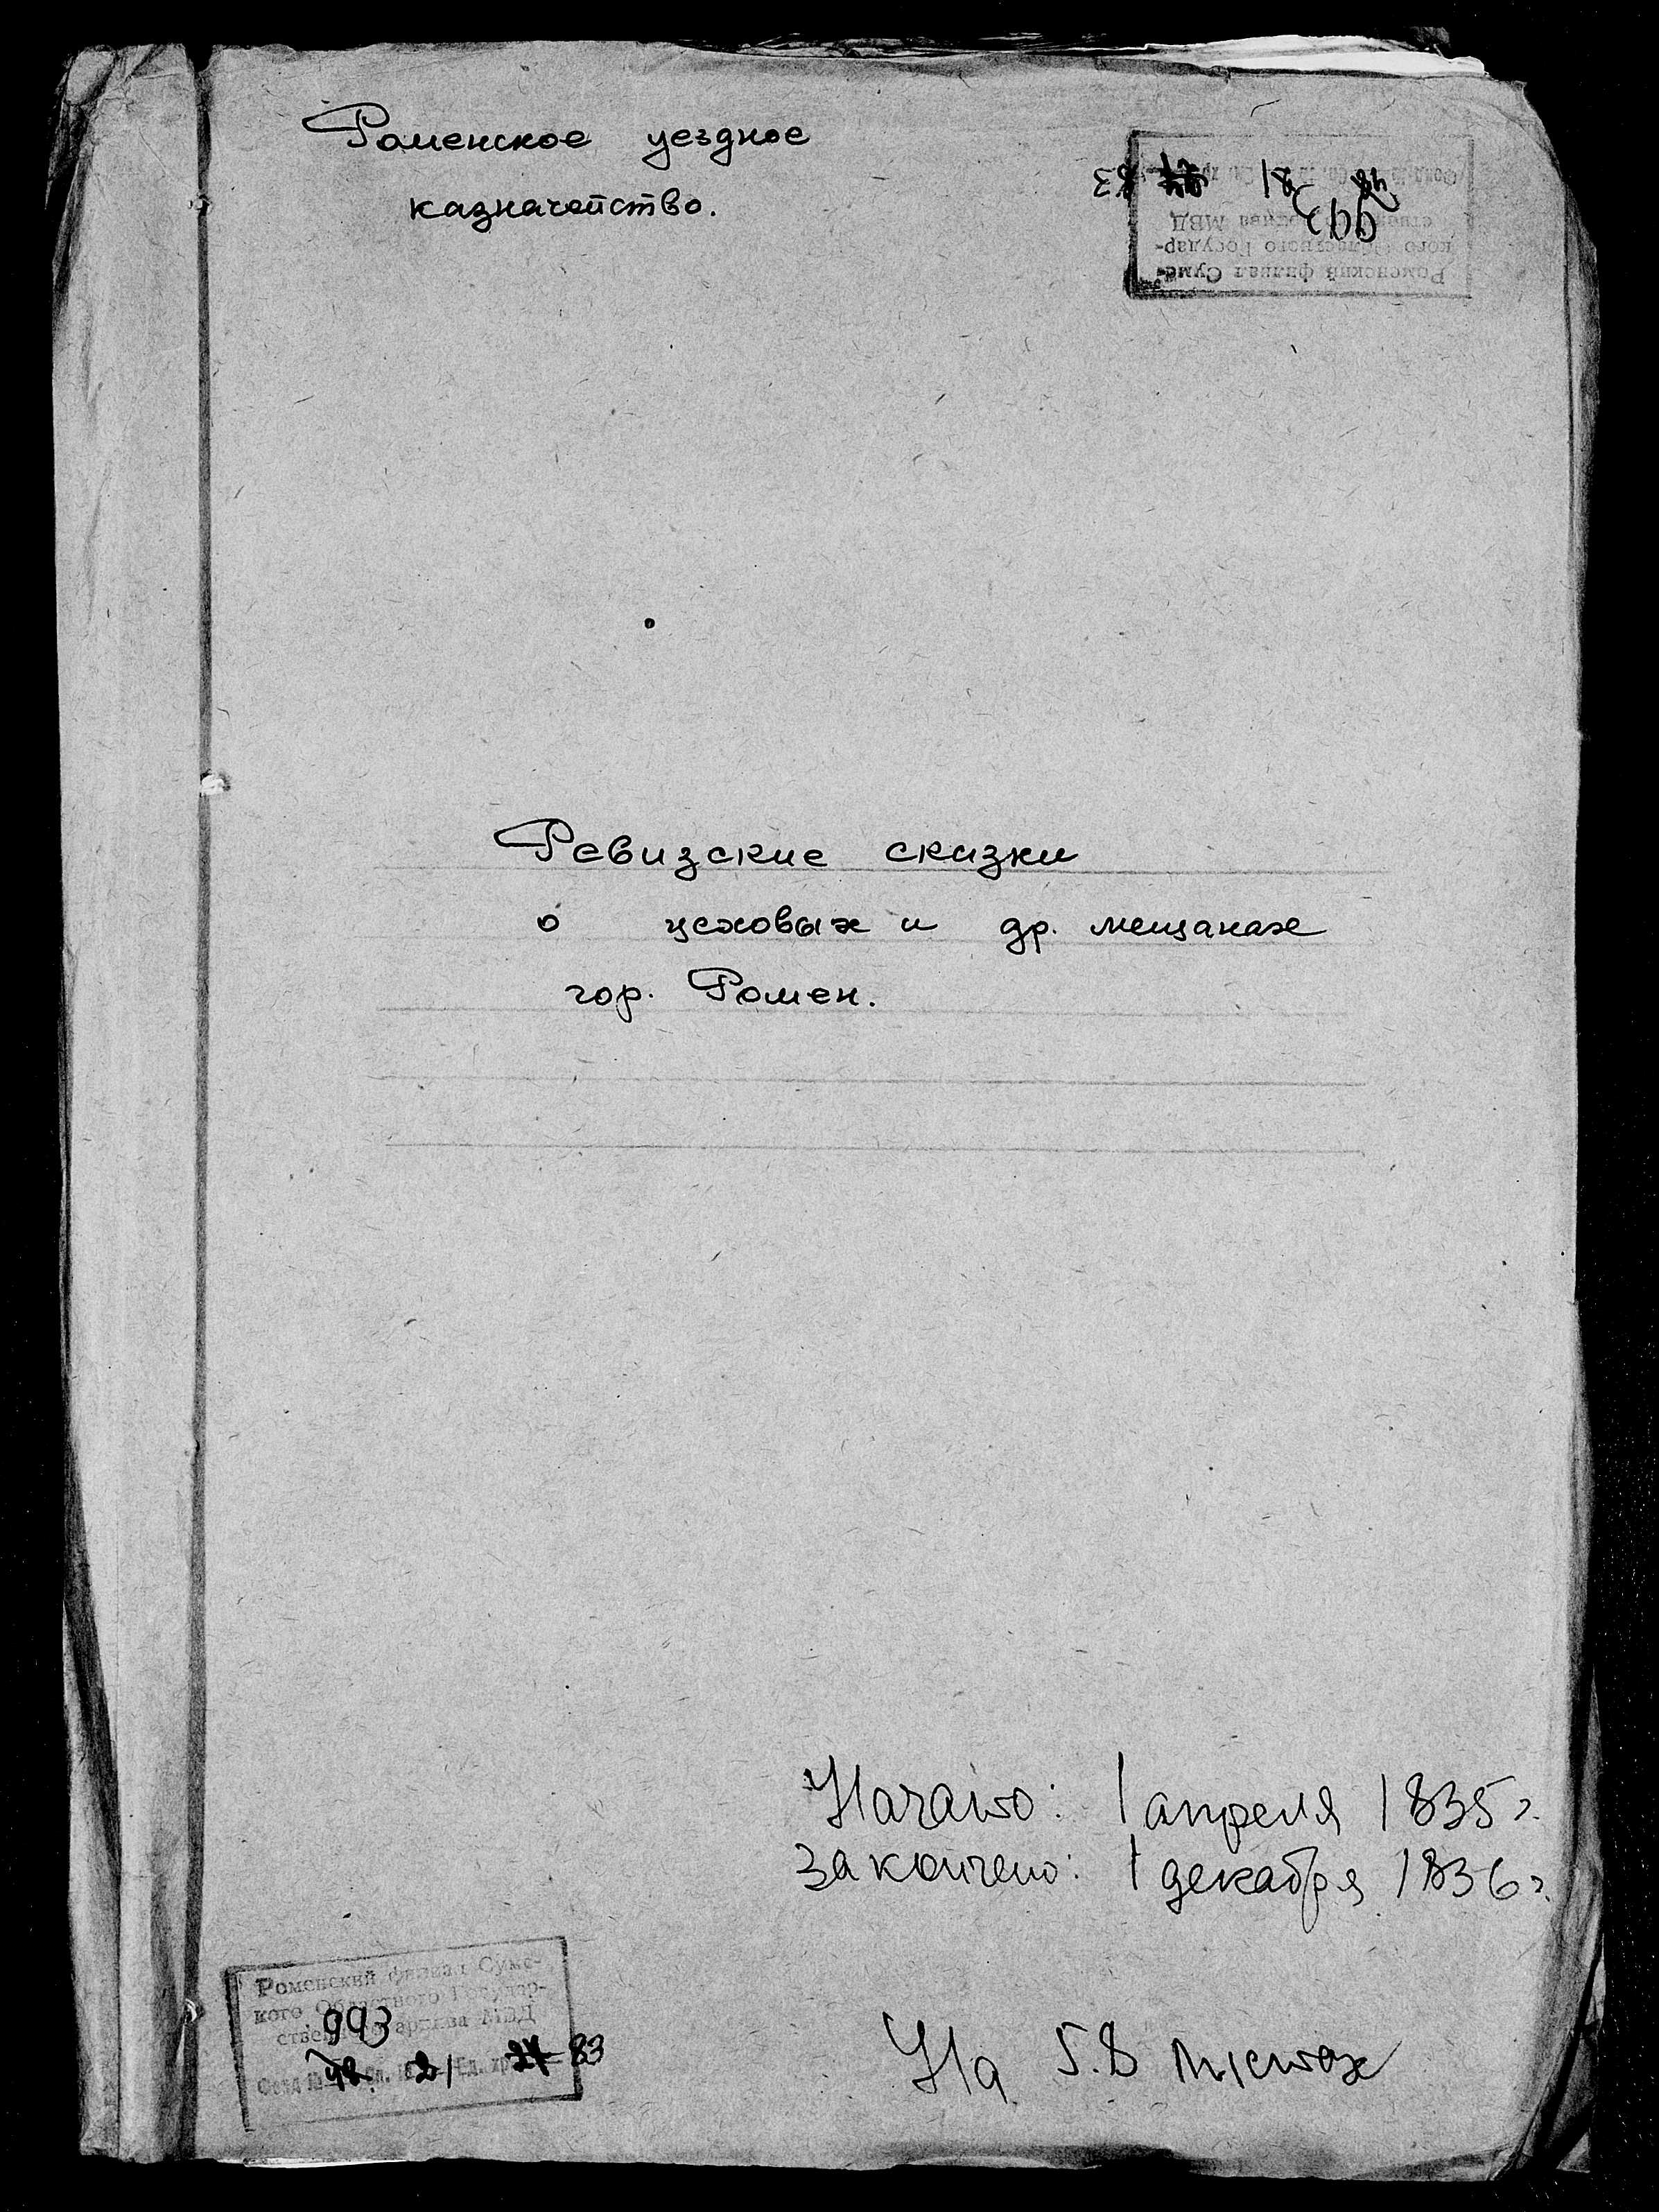 Роменское уездное
казначейство.
Роменский филиал Сумс-
кого Областного Государ-
ственного архива МВД
993
48 21 24 83
Ревизские сказки
о цеховых и др. мещанах
гор. Ромен.
Начато: 1 апреля 1835 г.
Закончено: 1 декабря 1836 г.
Роменский филиал Сумс-
кого Областного Государ-
ственного архива МВД
993
Фонд № 48 Оп. № 21 Ед. хр. 24 83
На листах